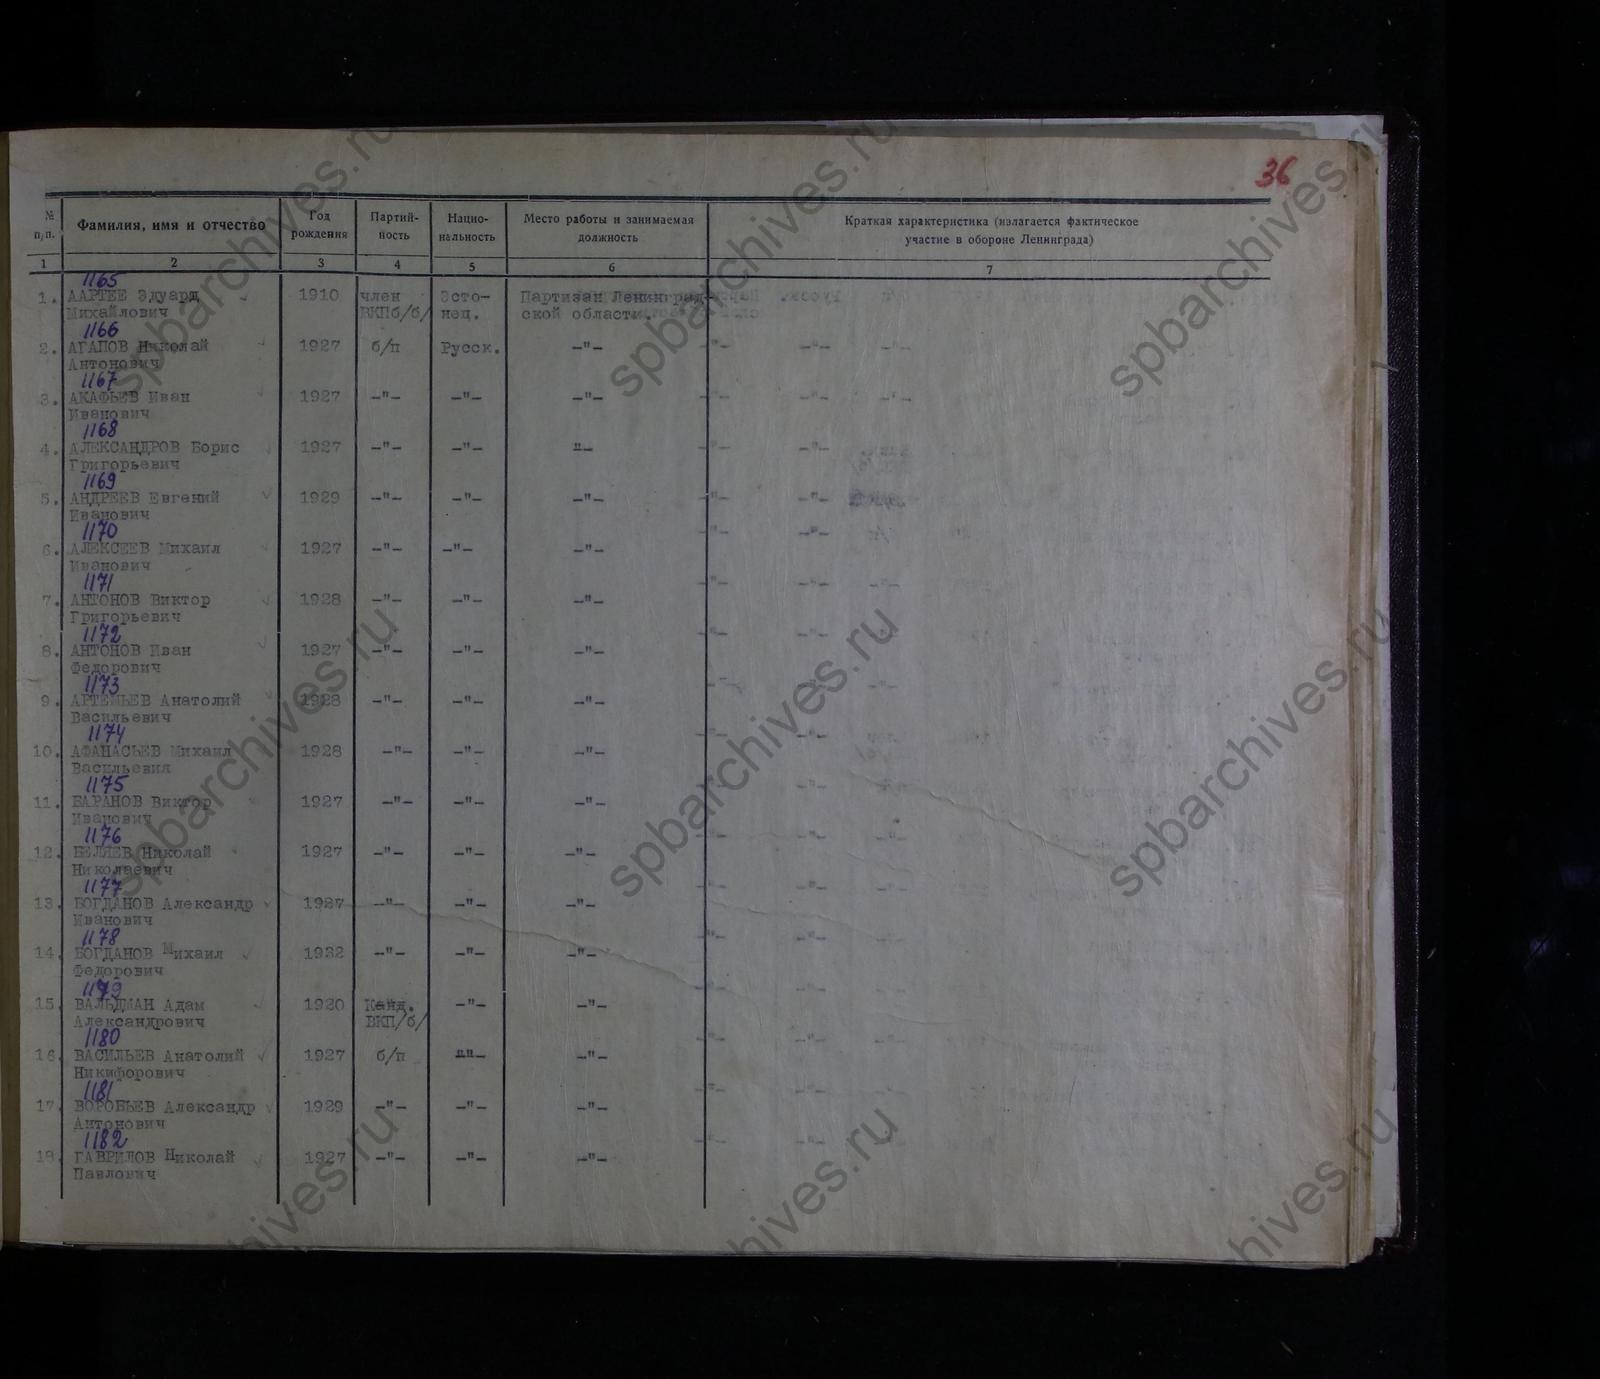 36
№ п/п. Фамилия, имя и отчество Год рождения Партий-ность Нацио-нальность Место работы и занимаемая должность Краткая характеристика (излагается фактическое участие в обороне Ленинграда)
1 2 3 4 5 6 7
1165
1. ААРТЕЕ Эдуард 1910 член Эсто- Партизан Ленинград-
Михайлович ВКПб/б/ нец. ской области.
1166
2. АГАПОВ Николай 1927 б/п Русск. -"-
Антонович
1167
3. АКАФЬЕВ Иван 1927 -"- -"- -"-
Иванович
1168
4. АЛЕКСАНДРОВ Борис 1927 -"- -"- "-
Григорьевич
1169
5. АНДРЕЕВ Евгений 1929 -"- -"- -"-
Иванович
1170
6. АЛЕКСЕЕВ Михаил 1927 -"- -"- -"-
Иванович
1171
7. АНТОНОВ Виктор 1928 -"- -"- -"-
Григорьевич
1172
8. АНТОНОВ Иван 1927 -"- -"- -"-
Федорович
1173
9. АРТЕМЬЕВ Анатолий 1928 -"- -"- -"-
Васильевич
1174
10. АФАНАСЬЕВ Михаил 1928 -"- -"- -"-
Васильевия
1175
11. БАРАНОВ Виктор 1927 -"- -"- -"-
Иванович
1176
12. БЕЛЯЕВ Николай 1927 -"- -"- -"-
Николаевич
1177
13. БОГДАНОВ Александр 1927 -"- -"- -"-
Иванович
1178
14. БОГДАНОВ Михаил 1932 -"- -"- -"-
Федорович
1179
15. ВАЛЬДМАН Адам 1920 Канд. -"- -"-
Александрович ВКП/б/
1180
16. ВАСИЛЬЕВ Анатолий 1927 б/п "- -"-
Никифорович
1181
17. ВОРОБЬЕВ Александр 1929 -"- -"- -"-
Антонович
1182
18. ГАВРИЛОВ Николай 1927 -"- -"- -"-
Павлович
spbarchives.ru
spbarchives.ru
spbarchives.ru
spbarchives.ru
spbarchives.ru
spbarchives.ru